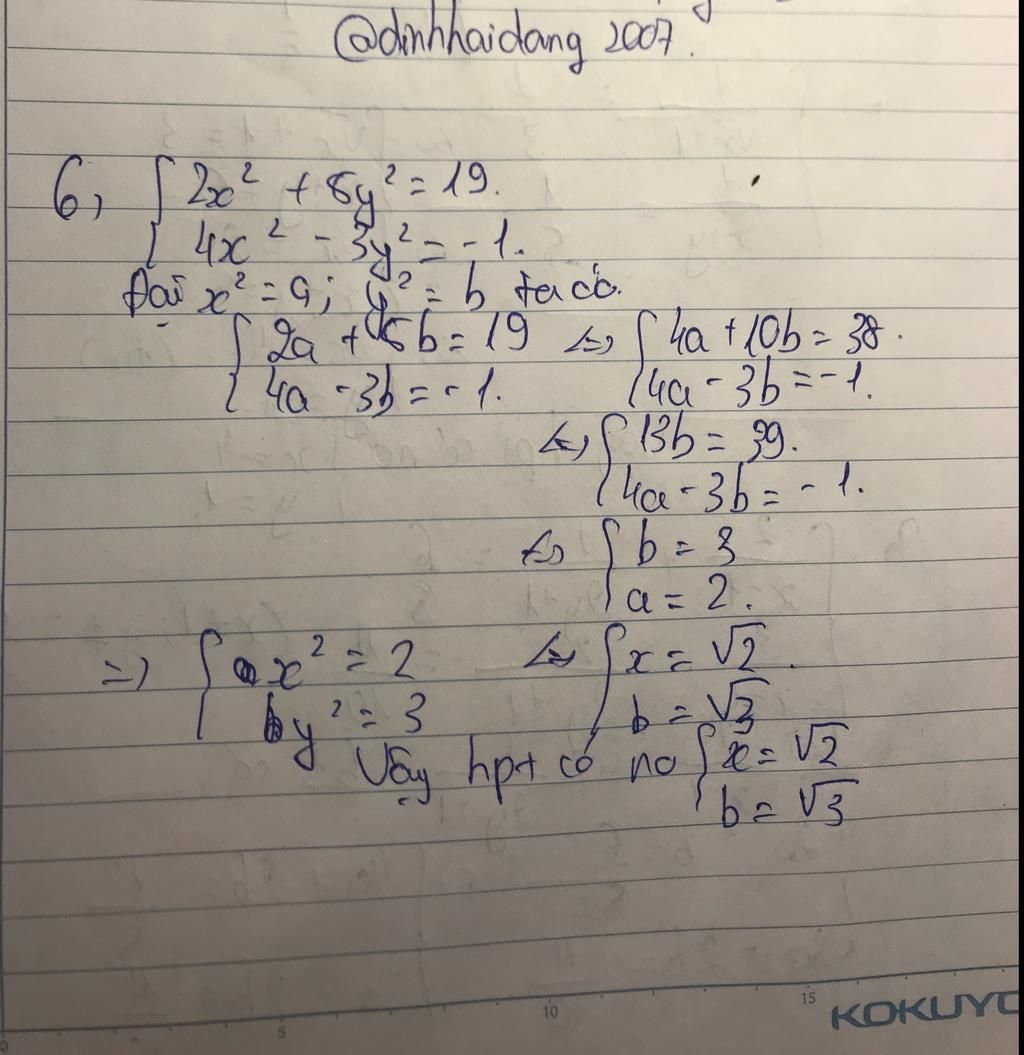 @dinhhaidang 2007.
6, { 2x² + 5y² = 19.
4x² - 3y² = -1.
Đặt x² = a; y² = b ta có.
{ 2a + 5b = 19 <=> { 4a + 10b = 38.
4a - 3b = -1. 4a - 3b = -1.
<=> { 13b = 39.
4a - 3b = -1.
<=> { b = 3
a = 2.
=> { x² = 2 <=> { x = √2.
y² = 3 b = √3
Vậy hpt có no { x = √2
b = √3
5 10 15 KOKUYO